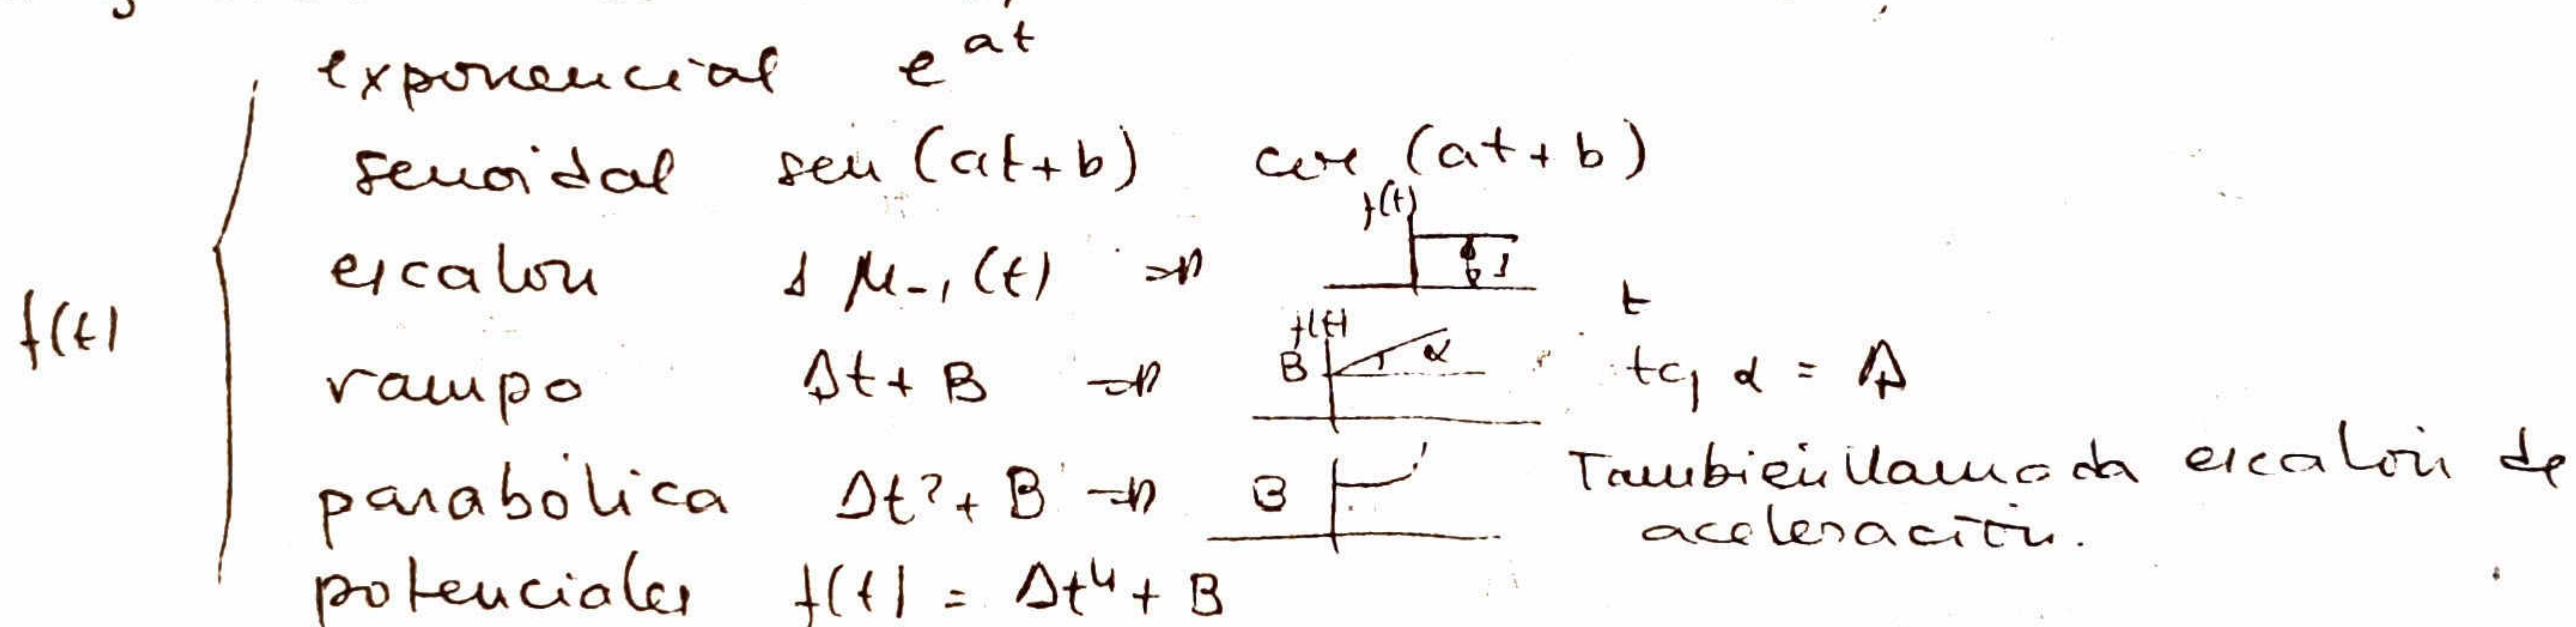 exponencial e^at
senoidal sen (at+b) cos (at+b)
escalon 1 μ-1(t) ⇒ f(t) 1 t
f(t)
rampa At + B ⇒ f(t) B α tg α = A
parabólica At² + B ⇒ B También llamada escalón de
aceleración.
potenciales f(t) = Atⁿ + B